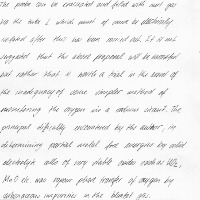 The probe can be evacuated and filled with inert gas
via the tube L which must of course be effectively
isolated after this has been carried out. It is not
suggested that the above proposal will be worthwhile
but rather that it merits a trial in the event of
the inadequacy of some simpler method of
monitoring the oxygen in a sodium circuit. The
principal difficulty mentioned by the author, in
determining partial molal free energies by solid
electrolyte cells of very stable oxides such as UO2,
MnO etc. was vapour phase transfer of oxygen by
carbonaceous impurities in the blanket gas.